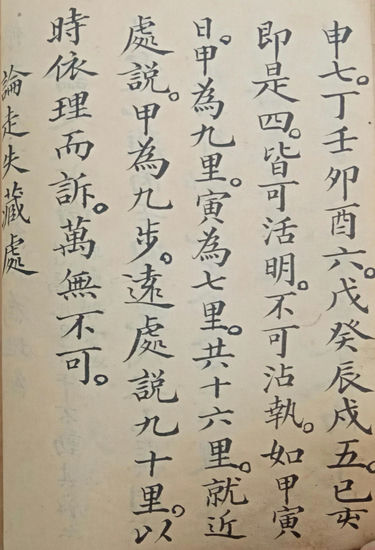 申七。丁壬卯酉六。戊癸辰戌五。巳亥
即是四。皆可活明。不可沾執。如甲寅
日。甲為九里。寅為七里。共十六里。就近
處説。甲為九步。遠處説九十里。以
時依理而訴。萬無不可。
論走失藏處